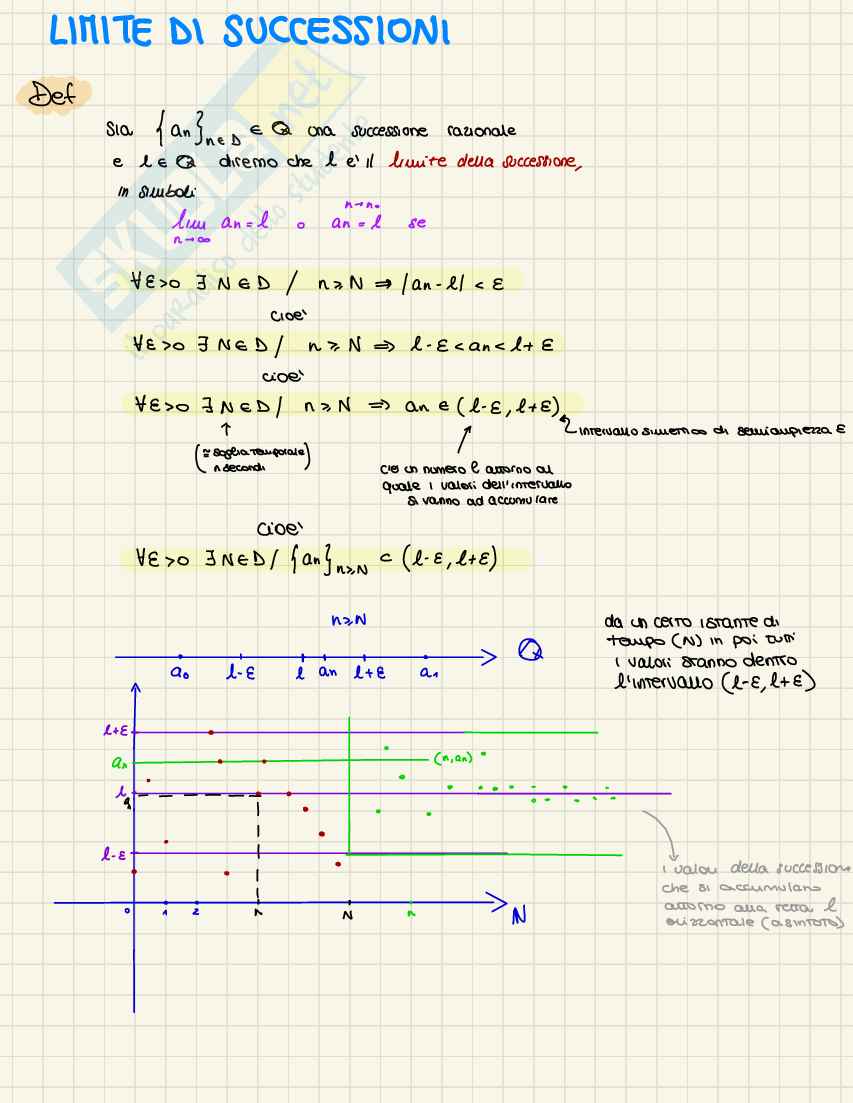 LIMITE DI SUCCESSIONI
Def
Sia {an}n∈D ∈ Q una successione razionale
e l ∈ Q diremo che l e' il limite della successione,
in simboli
lim an = l o an = l se
n→∞ n→n₀
∀ε>0 ∃ N∈D / n≥N ⇒ |an-l| < ε
cioe'
∀ε>0 ∃ N∈D / n≥N ⇒ l-ε < an < l+ε
cioe'
∀ε>0 ∃ N∈D / n≥N ⇒ an ∈ (l-ε, l+ε)
intervallo simmetrico di semiampiezza ε
(≃ soglia temporale
n secondi)
c'è un numero l attorno al
quale i valori dell'intervallo
si vanno ad accumulare
cioe'
∀ε>0 ∃ N∈D / {an}n≥N ⊂ (l-ε, l+ε)
n≥N
a₀ l-ε l an l+ε a₁ Q
da un certo istante di
tempo (N) in poi tutti
i valori stanno dentro
l'intervallo (l-ε, l+ε)
l+ε
an (n, an)
l
l-ε
0 1 2 n N n N
i valori della successione
che si accumulano
attorno alla retta l
orizzontale (asintoto)
SKUOLA.net
il paradiso dello studente